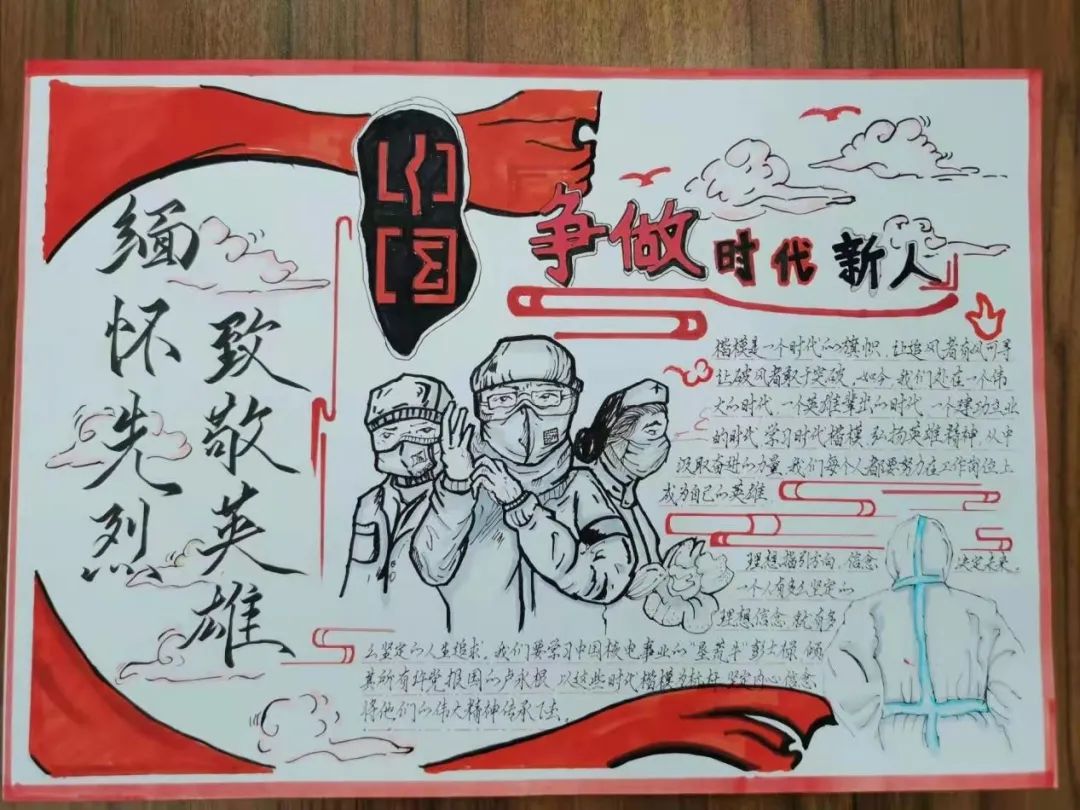 缅怀先烈
致敬英雄
争做时代新人』
楷模是一个时代的旗帜,让追风者有风可寻
让破风者敢于突破,如今,我们处在一个伟
大的时代,一个英雄辈出的时代,一个建功立业
的时代,学习时代楷模,弘扬英雄精神,从中
汲取奋进的力量,我们每个人都要努力在工作岗位上
成为自己的英雄.
理想指引方向,信念 决定未来.
一个人有多么坚定的
理想信念 就有多
么坚定的人生追求,我们要学习中国核电事业的"垦荒牛"彭士禄,倾
其所有 党报国的卢永根,以这些时代楷模为标杆,坚定内心信念,
将他们的伟大精神传承下去.